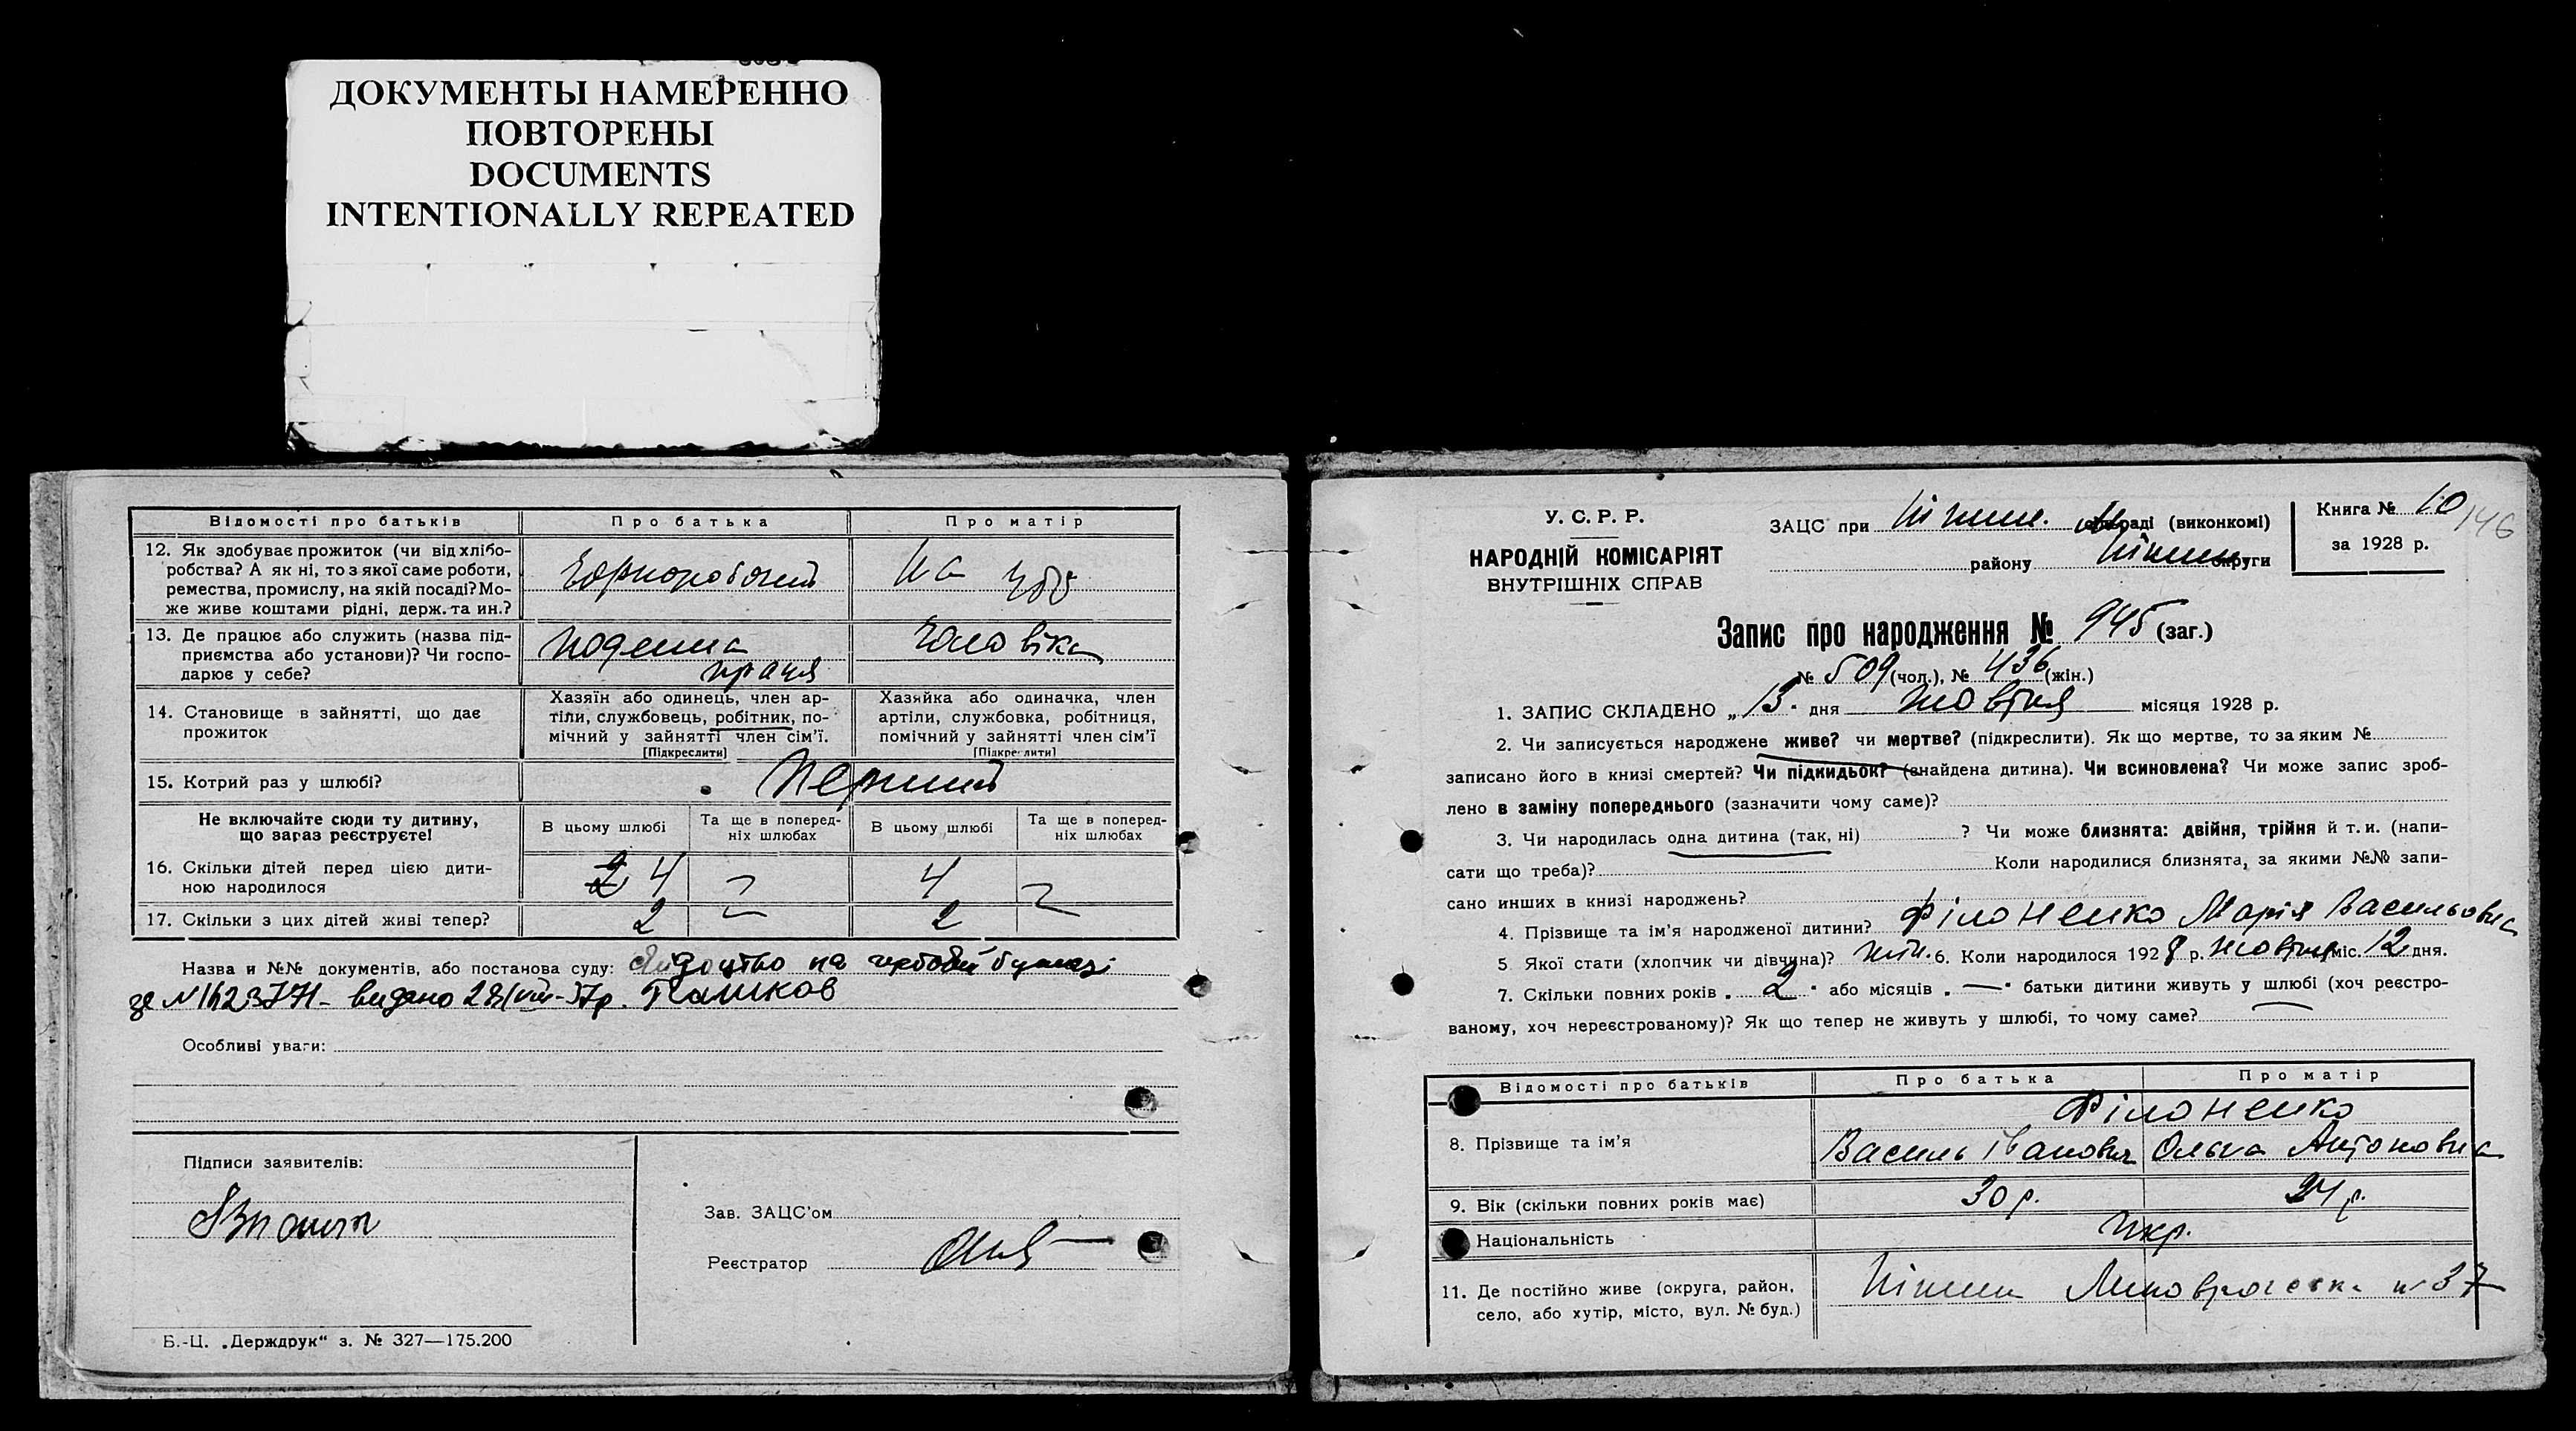 ДОКУМЕНТЫ НАМЕРЕННО
ПОВТОРЕНЫ
DOCUMENTS
INTENTIONALLY REPEATED
Відомості про батьків Про батька Про матір
12. Як здобуває прожиток (чи від хлібо-
робства? А як ні, то з якої саме роботи,
ремества, промислу, на якій посаді? Мо-
же живе коштами рідні, держ. та ин.?
Чорноробочий На
13. Де працює або служить (назва під-
приємства або установи)? Чи госпо-
дарює у себе?
поденна
праця
Чоловіка
14. Становище в зайнятті, що дає
прожиток
Хазяїн або одинець, член ар-
тіли, службовець, робітник, по-
мічний у зайнятті член сім'ї.
[Підкреслити]
Хазяйка або одиначка, член
артіли, службовка, робітниця,
помічний у зайнятті член сім'ї
[Підкреслити]
15. Котрий раз у шлюбі? Перший
Не включайте сюди ту дитину,
що зараз реєструєте!
В цьому шлюбі Та ще в поперед-
ніх шлюбах В цьому шлюбі Та ще в поперед-
ніх шлюбах
16. Скільки дітей перед цією дити-
ною народилося
2 4 4
17. Скільки з цих дітей живі тепер? 2 2
Назва и №№ документів, або постанова суду: свідоцтво на гербовій бумазі
за № 1623771 - видано 28/VIII-37р.
Особливі уваги:
Підписи заявителів:
Зав. ЗАЦС'ом
Реєстратор
Б.-Ц. „Держдрук“ з. № 327—175.200
У. С. Р. Р.
НАРОДНІЙ КОМІСАРІЯТ
ВНУТРІШНІХ СПРАВ
ЗАЦС при Ніжин. раді (виконкомі)
району Ніжин округи
Книга № 10
за 1928 р.
146
Запис про народження № 945 (заг.)
№ 509 (чол.), № 436 (жін.)
1. ЗАПИС СКЛАДЕНО „13“ дня жовтня місяця 1928 р.
2. Чи записується народжене живе? чи мертве? (підкреслити). Як що мертве, то за яким №
записано його в книзі смертей? Чи підкидьок? (знайдена дитина). Чи всиновлена? Чи може запис зроб-
лено в заміну попереднього (зазначити чому саме)?
3. Чи народилась одна дитина (так, ні) ? Чи може близнята: двійня, трійня й т. и. (напи-
сати що треба)? Коли народилися близнята, за якими №№ запи-
сано инших в книзі народжень?
4. Прізвище та ім'я народженої дитини? Філоненко Марія Васильовна
5 Якої стати (хлопчик чи дівчина)? жін. 6. Коли народилося 1928 р. жовтня міс. 12 дня.
7. Скільки повних років „2“ або місяців „—“ батьки дитини живуть у шлюбі (хоч реєстро-
ваному, хоч нереєстрованому)? Як що тепер не живуть у шлюбі, то чому саме?
Відомості про батьків Про батька Про матір
Філоненко
8. Прізвище та ім'я Василь Іванович Ольга Антоновна
9. Вік (скільки повних років має) 30 р. 24 р.
Національність Укр.
11. Де постійно живе (округа, район,
село, або хутір, місто, вул. № буд.)
Ніжин № 37